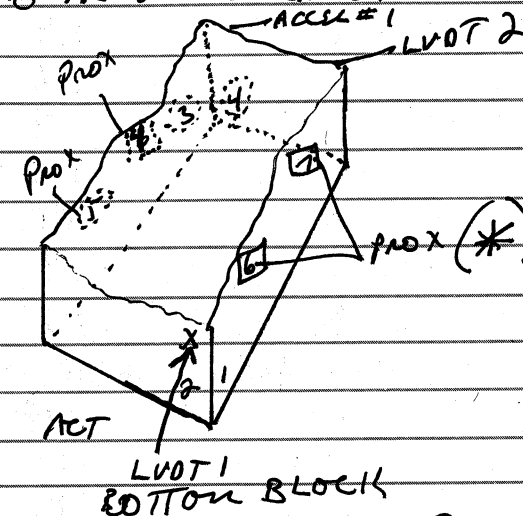 ACCEL #1
LVDT 2
PROX
3
4
PROX
1
7
PROX (*)
6
X
2
1
ACT
LVDT 1
BOTTOM BLOCK